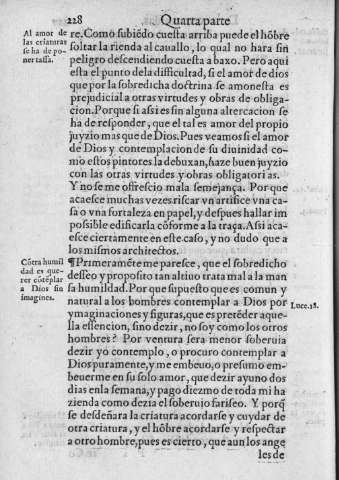 228
Quarta parte
Al amor de
las criaturas
se ha de po-
ner tassa.
re. Como subiẽdo cuesta arriba puede el hõbre
soltar la rienda al cauallo, lo qual no hara sin
peligro descendiendo cuesta a baxo. Pero aqui
esta el punto dela difficultad, si el amor de dios
que por la sobredicha doctrina se amonesta es
prejudicial a otras virtudes y obras de obliga-
cion. Porque si assi es sin alguna altercacion se
ha de responder, que el tal es amor del propio
juyzio mas que de Dios. Pues veamos si el amor
de Dios y contemplacion de su diuinidad co-
mo estos pintores la debuxan, haze buen juyzio
con las otras virtudes y obras obligatorias.
Y no se me offrescio mala semejança. Porque
acaesce muchas vezes riscar vn artifice vna ca-
sa o vna fortaleza en papel, y despues hallar im
possible edificarla cõforme a la traça. Assi acae-
sce ciertamente en este caso, y no dudo que a
los mismos architectos.
Cõtra humil
dad es que-
rer cõtẽplar
a Dios sin
imagines.
¶Primeramẽte me paresce, que el sobredicho
desseo y proposito tan altiuo trata mal a la man
sa humildad. Por que supuesto que es comun y
natural a los hombres contemplar a Dios por
ymaginaciones y figuras, que es pretẽder aque-
lla essencion, sino dezir, no soy como los otros
hombres? Por ventura sera menor soberuia
dezir yo contemplo, o procuro contemplar a
Dios puramente, y me embeuo, o presumo em-
beuerme en su solo amor, que dezir ayuno dos
dias en la semana, y pago diezmo de toda mi ha
zienda como dezia el soberujo fariseo. Y porq̃
se desdeñara la criatura acordarse y cuydar de
otra criatura, y el hõbre acordarse y respectar
a otro hombre, pues es cierto, que aun los ange
les de
Luce. 18.